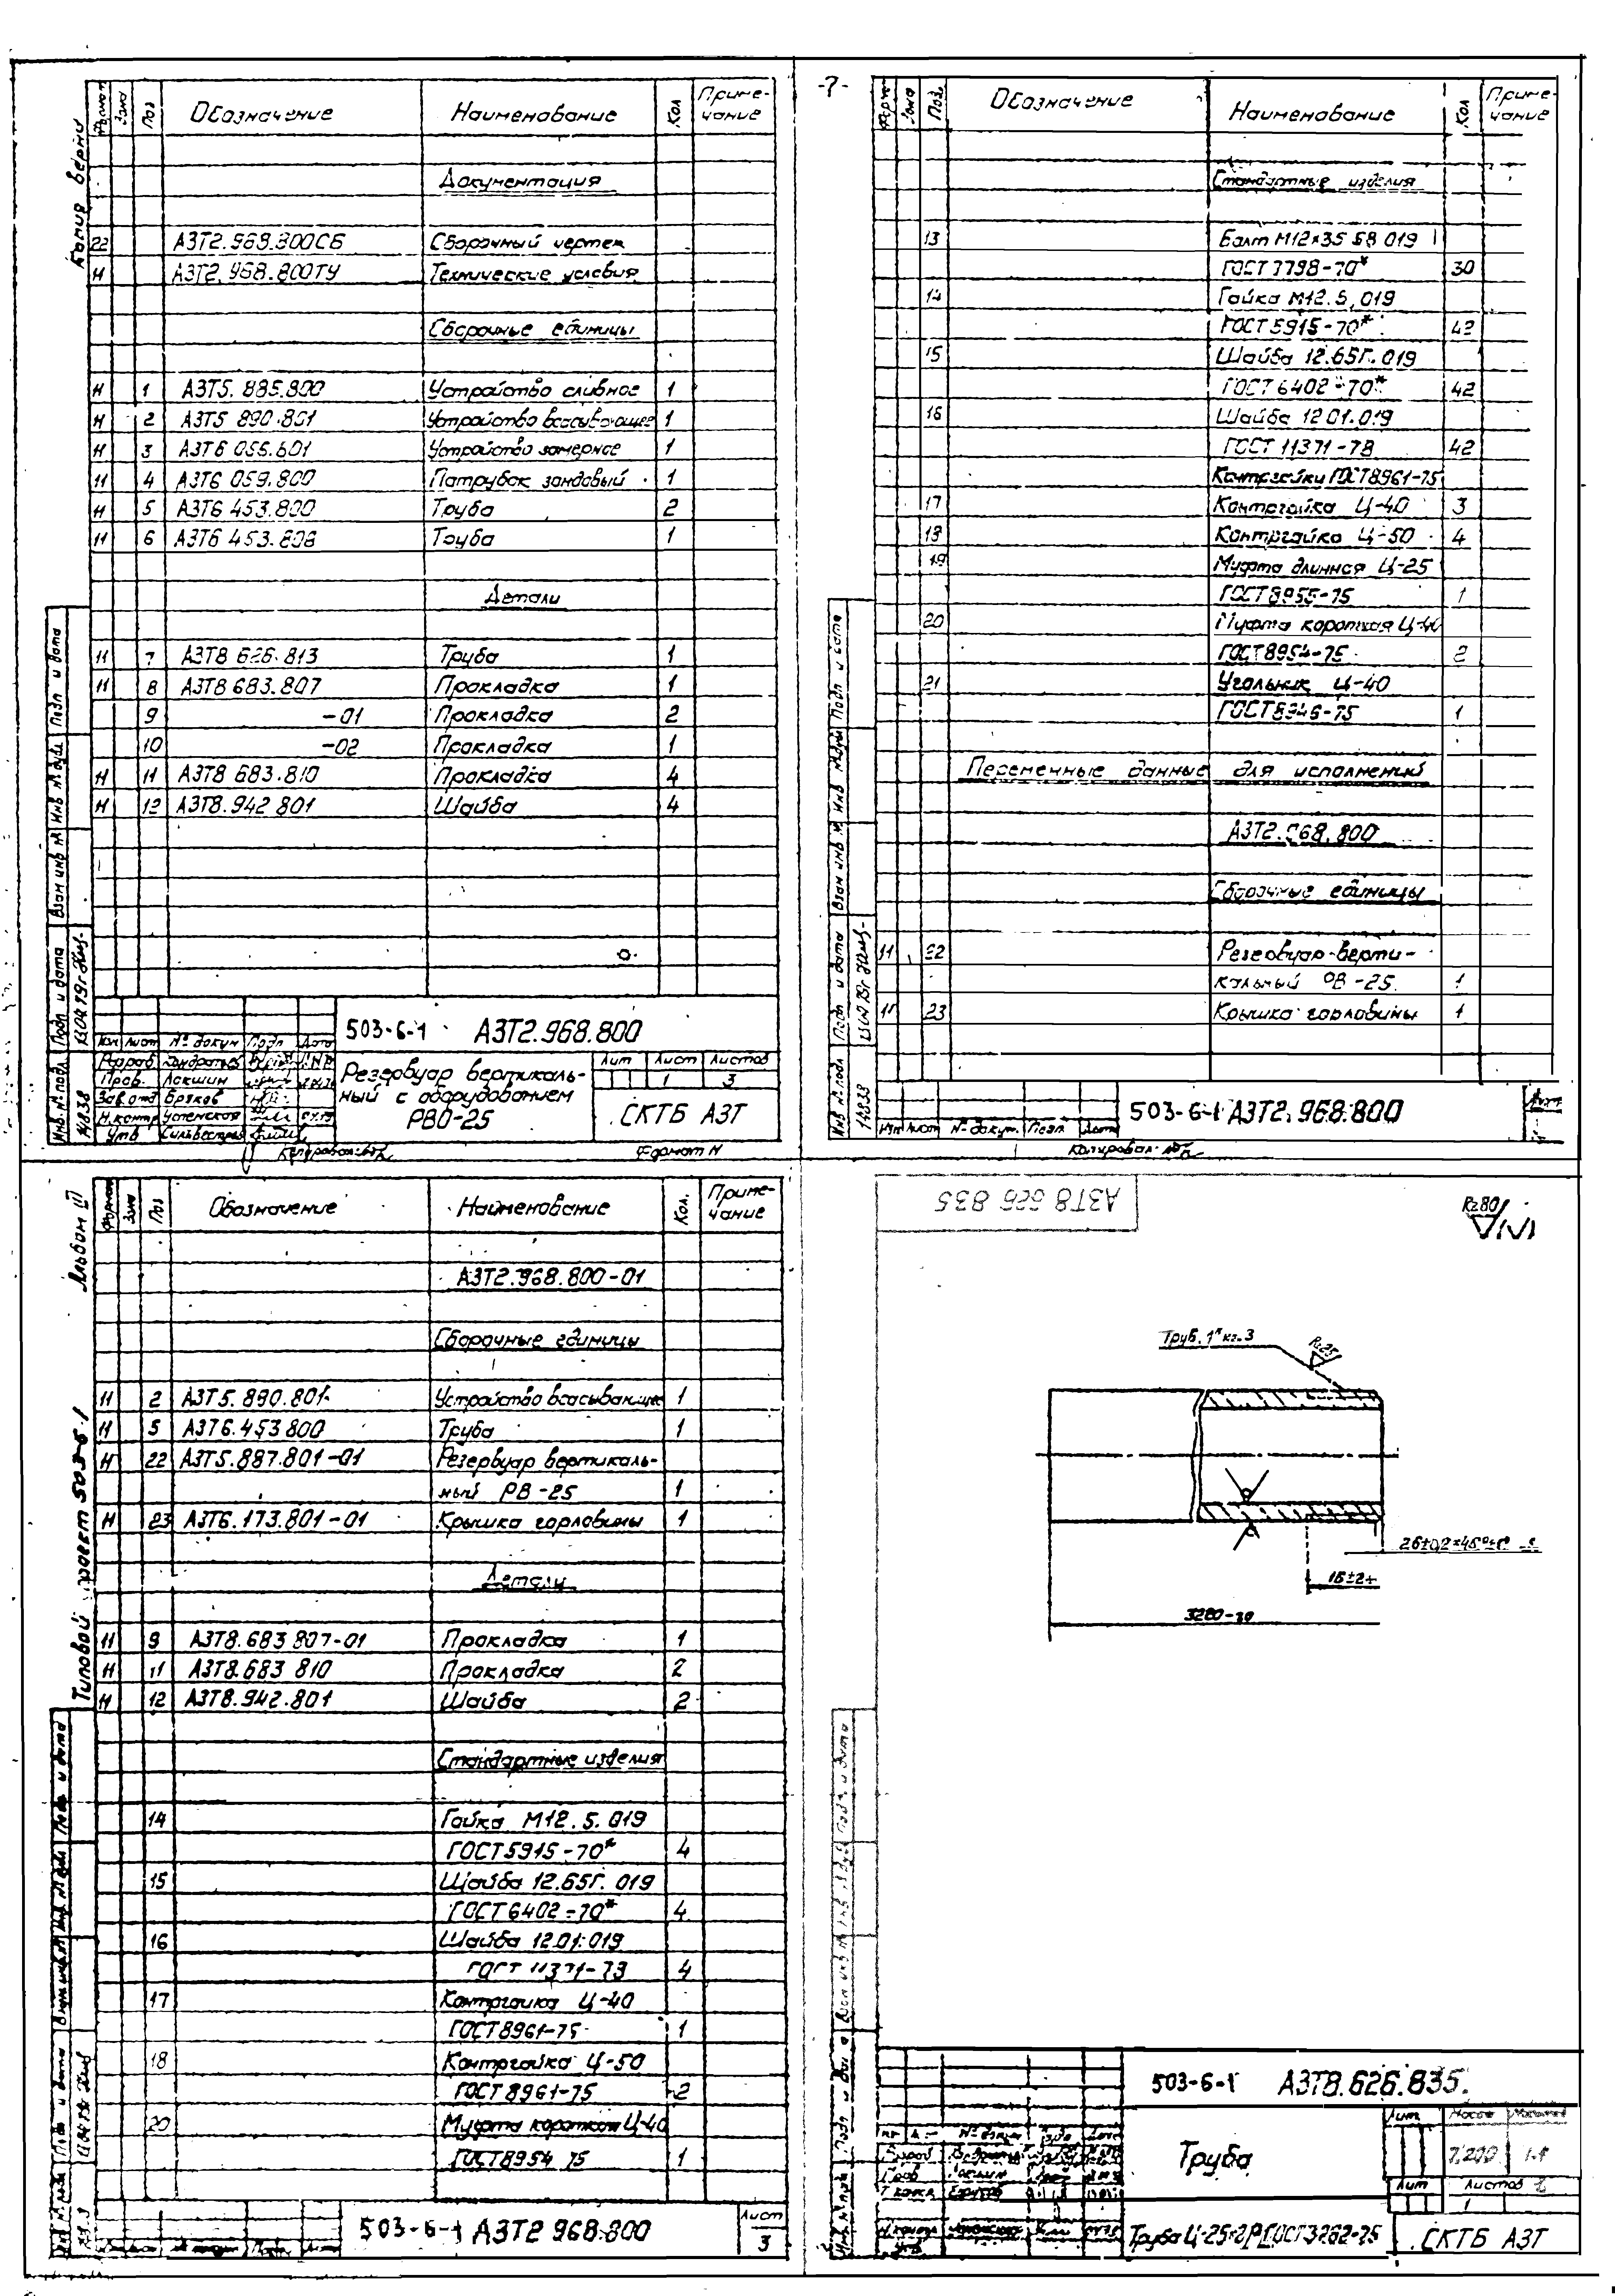 Копия верна
Формат Зона Поз. Обозначение Наименование Кол Приме-
чание
Документация
22 АЗТ2.968.800СБ Сборочный чертеж
11 АЗТ2.968.800ТУ Технические условия
Сборочные единицы
11 1 АЗТ5.885.800 Устройство сливное 1
11 2 АЗТ5 890.801 Устройство всасывающее 1
11 3 АЗТ6 055.601 Устройство замерное 1
11 4 АЗТ6 059.800 Патрубок зондовый 1
11 5 АЗТ6 453.800 Труба 2
11 6 АЗТ6 453.808 Труба 1
Детали
11 7 АЗТ8 626.813 Труба 1
11 8 АЗТ8 683.807 Прокладка 1
9 -01 Прокладка 2
10 -02 Прокладка 1
11 11 АЗТ8 683.810 Прокладка 4
11 12 АЗТ8.942 801 Шайба 4
Инв № подл Подп и дата Взам инв № Инв № дубл Подп и дата
14838
503-6-1 АЗТ2.968.800
Изм Лист № докум Подп Дата
Разраб
Пров. Локшин
Зав отд Бряков
Н.контр Успенская
Утв
Резервуар вертикаль-
ный с оборудованием
РВО-25
Лит Лист Листов
1 3
СКТБ АЗТ
Копировал Формат 11
-7-
Формат Зона Поз. Обозначение Наименование Кол Приме-
чание
Стандартные изделия
13 Болт М12×35 58 019
ГОСТ 7798-70* 30
14 Гайка М12.5.019
ГОСТ 5915-70* 42
15 Шайба 12.65Г.019
ГОСТ 6402-70* 42
16 Шайба 12 01.019
ГОСТ 11371-78 42
Контргайки ГОСТ8961-75
17 Контргайка Ц-40 3
18 Контргайка Ц-50 4
19 Муфта длинная Ц-25
ГОСТ8955-75 1
20 Муфта короткая Ц-40
ГОСТ8954-75 2
21 Угольник Ц-40
ГОСТ8946-75 1
Переменные данные для исполнений
АЗТ2.968.800
Сборочные единицы
11 22 Резервуар верти-
кальный РВ-25 1
11 23 Крышка горловины 1
Инв № подл Подп и дата Взам инв № Инв № дубл Подп и дата
14838
Изм Лист № докум. Подп Дата
503-6-1 АЗТ2.968.800
Лист
Копировал
Альбом III
Типовой проект 503-6-1
Формат Зона Поз Обозначение Наименование Кол. Приме-
чание
АЗТ2.968.800-01
Сборочные единицы
11 2 АЗТ5.890.801 Устройство всасывающее 1
11 5 АЗТ6.453 800 Труба 1
11 22 АЗТ5.887.801-01 Резервуар вертикаль-
ный РВ-25 1
11 23 АЗТ6.173.801-01 Крышка горловины 1
Детали
11 9 АЗТ8.683 807-01 Прокладка 1
11 11 АЗТ8.683 810 Прокладка 2
11 12 АЗТ8.942.801 Шайба 2
Стандартные изделия
14 Гайка М12.5.019
ГОСТ5915-70* 4
15 Шайба 12.65Г.019
ГОСТ6402-70* 4
16 Шайба 12.01.019
ГОСТ 11371-78 4
17 Контргайка Ц-40
ГОСТ8961-75 1
18 Контргайка Ц-50
ГОСТ8961-75 2
20 Муфта короткая Ц-40
ГОСТ8954 75 1
503-6-1 АЗТ2 968.800
Лист
3
АЗТ8 626 835
Rz80
Труб. 1" кл.3
Rz25
2,6±0,2×45°±1°
3280-
503-6-1 АЗТ8.626.835.
Труба
Лит Масса Масштаб
1:1
Лист Листов
1
Труба Ц-25-2Р ГОСТ3262-75
СКТБ АЗТ